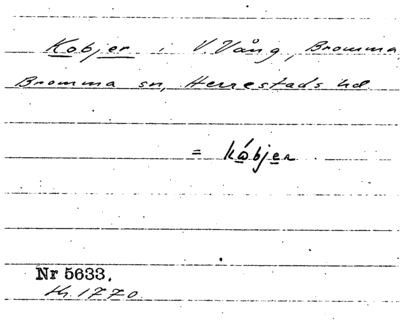 Kobjer i V. Vång, Bromma,
Bromma sn, Herrestads hd
= kóbjer
Nr 5633.
1770